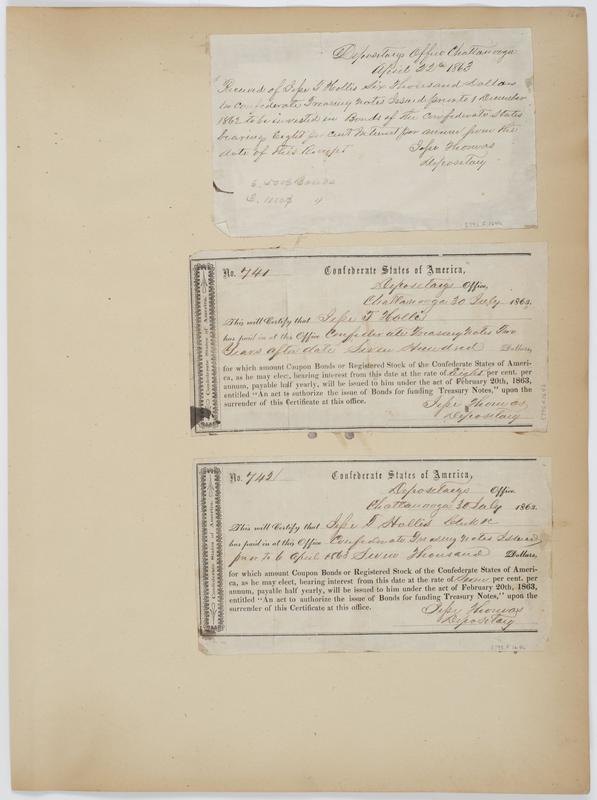 Depositarys Office Chattanooga
April 22th 1863
Received of Jesse T Hollis Six Thousand Dollars
in Confederate Treasury Notes Issued prior to 1 December
1862 to be invested in Bonds of the Confederate States
bearing Eight per cent Interest per annum from the
date of this Receipt
Jesse Thomas
Depositary
No. 741
Confederate States of America,
Depositarys Office,
Chattanooga 30 July 1863.
This will Certify that Jesse T Hollis
has paid in at this Office Confederate Treasury Notes Two
Years after date Seven Hundred Dollars,
for which amount Coupon Bonds or Registered Stock of the Confederate States of Ameri-
ca, as he may elect, bearing interest from this date at the rate of Eight per cent. per
annum, payable half yearly, will be issued to him under the act of February 20th, 1863,
entitled "An act to authorize the issue of Bonds for funding Treasury Notes," upon the
surrender of this Certificate at this office.
Jesse Thomas
Depositary
Confederate States of America.
No. 742
Confederate States of America,
Depositarys Office
Chattanooga 30 July 1863.
This will Certify that Jesse T Hollis
has paid in at this Office Confederate Treasury Notes Issued
prior to 6 April 1863 Seven Thousand Dollars,
for which amount Coupon Bonds or Registered Stock of the Confederate States of Ameri-
ca, as he may elect, bearing interest from this date at the rate of Seven per cent. per
annum, payable half yearly, will be issued to him under the act of February 20th, 1863,
entitled "An act to authorize the issue of Bonds for funding Treasury Notes," upon the
surrender of this Certificate at this office.
Jesse Thomas
Depositary
Confederate States of America.